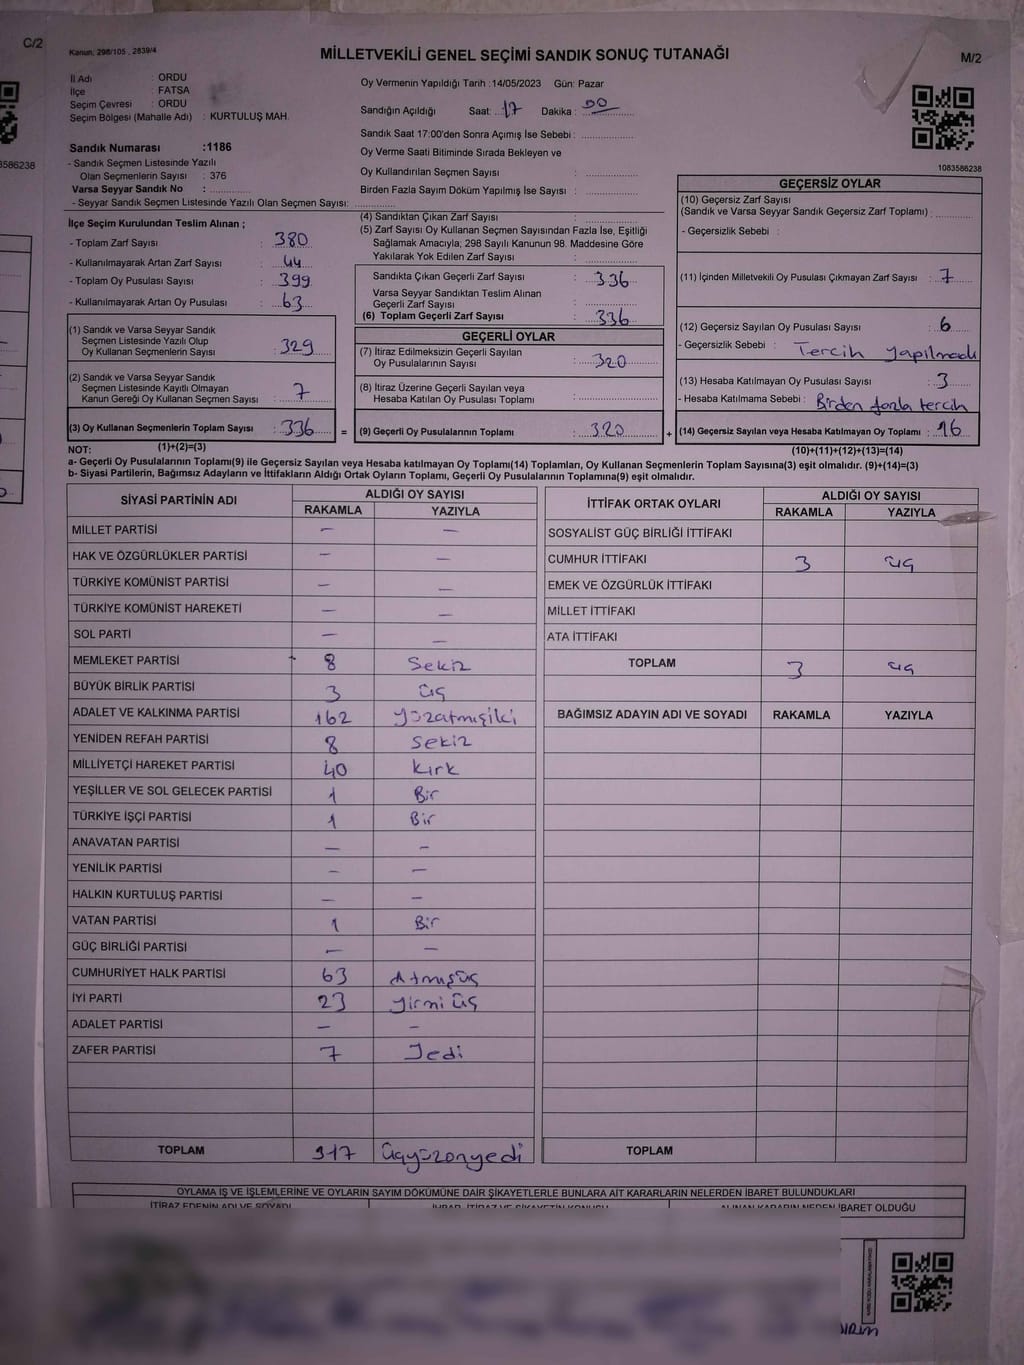 C/2
Kanun; 298/105 , 2839/4
MİLLETVEKİLİ GENEL SEÇİMİ SANDIK SONUÇ TUTANAĞI
M/2
İl Adı : ORDU
İlçe : FATSA
Seçim Çevresi : ORDU
Seçim Bölgesi (Mahalle Adı) : KURTULUŞ MAH.
Sandık Numarası :1186
- Sandık Seçmen Listesinde Yazılı
Olan Seçmenlerin Sayısı : 376
Varsa Seyyar Sandık No :
- Seyyar Sandık Seçmen Listesinde Yazılı Olan Seçmen Sayısı:
Oy Vermenin Yapıldığı Tarih :14/05/2023 Gün: Pazar
Sandığın Açıldığı Saat: 17 Dakika : 00
Sandık Saat 17:00'den Sonra Açımış İse Sebebi :
Oy Verme Saati Bitiminde Sırada Bekleyen ve
Oy Kullandırılan Seçmen Sayısı :
Birden Fazla Sayım Döküm Yapılmış İse Sayısı :
3586238
1083586238
İlçe Seçim Kurulundan Teslim Alınan ;
- Toplam Zarf Sayısı : 380
- Kullanılmayarak Artan Zarf Sayısı : 44
- Toplam Oy Pusulası Sayısı : 399
- Kullanılmayarak Artan Oy Pusulası : 63
(1) Sandık ve Varsa Seyyar Sandık
Seçmen Listesinde Yazılı Olup
Oy Kullanan Seçmenlerin Sayısı : 329
(2) Sandık ve Varsa Seyyar Sandık
Seçmen Listesinde Kayıtlı Olmayan
Kanun Gereği Oy Kullanan Seçmen Sayısı : 7
(3) Oy Kullanan Seçmenlerin Toplam Sayısı : 336 =
(1)+(2)=(3)
(4) Sandıktan Çıkan Zarf Sayısı :
(5) Zarf Sayısı Oy Kullanan Seçmen Sayısından Fazla İse, Eşitliği
Sağlamak Amacıyla; 298 Sayılı Kanunun 98. Maddesine Göre
Yakılarak Yok Edilen Zarf Sayısı :
Sandıkta Çıkan Geçerli Zarf Sayısı : 336
Varsa Seyyar Sandıktan Teslim Alınan
Geçerli Zarf Sayısı :
(6) Toplam Geçerli Zarf Sayısı : 336
GEÇERLİ OYLAR
(7) İtiraz Edilmeksizin Geçerli Sayılan
Oy Pusulalarının Sayısı : 320
(8) İtiraz Üzerine Geçerli Sayılan veya
Hesaba Katılan Oy Pusulası Toplamı :
(9) Geçerli Oy Pusulalarının Toplamı : 320 +
GEÇERSİZ OYLAR
(10) Geçersiz Zarf Sayısı
(Sandık ve Varsa Seyyar Sandık Geçersiz Zarf Toplamı) :
- Geçersizlik Sebebi :
(11) İçinden Milletvekili Oy Pusulası Çıkmayan Zarf Sayısı : 7
(12) Geçersiz Sayılan Oy Pusulası Sayısı : 6
- Geçersizlik Sebebi : Tercih yapılmadı
(13) Hesaba Katılmayan Oy Pusulası Sayısı : 3
- Hesaba Katılmama Sebebi : Birden fazla tercih
(14) Geçersiz Sayılan veya Hesaba Katılmayan Oy Toplamı : 16
(10)+(11)+(12)+(13)=(14)
NOT:
a- Geçerli Oy Pusulalarının Toplamı(9) ile Geçersiz Sayılan veya Hesaba katılmayan Oy Toplamı(14) Toplamları, Oy Kullanan Seçmenlerin Toplam Sayısına(3) eşit olmalıdır. (9)+(14)=(3)
b- Siyasi Partilerin, Bağımsız Adayların ve İttifakların Aldığı Ortak Oyların Toplamı, Geçerli Oy Pusulalarının Toplamına(9) eşit olmalıdır.
SİYASİ PARTİNİN ADI ALDIĞI OY SAYISI
RAKAMLA YAZIYLA
MİLLET PARTİSİ — —
HAK VE ÖZGÜRLÜKLER PARTİSİ — —
TÜRKİYE KOMÜNİST PARTİSİ — —
TÜRKİYE KOMÜNİST HAREKETİ — —
SOL PARTİ — —
MEMLEKET PARTİSİ 8 Sekiz
BÜYÜK BİRLİK PARTİSİ 3 üç
ADALET VE KALKINMA PARTİSİ 162 Yüzatmışiki
YENİDEN REFAH PARTİSİ 8 Sekiz
MİLLİYETÇİ HAREKET PARTİSİ 40 Kırk
YEŞİLLER VE SOL GELECEK PARTİSİ 1 Bir
TÜRKİYE İŞÇİ PARTİSİ 1 Bir
ANAVATAN PARTİSİ — —
YENİLİK PARTİSİ — —
HALKIN KURTULUŞ PARTİSİ — —
VATAN PARTİSİ 1 Bir
GÜÇ BİRLİĞİ PARTİSİ — —
CUMHURİYET HALK PARTİSİ 63 Atmışüç
İYİ PARTİ 23 Yirmi üç
ADALET PARTİSİ — —
ZAFER PARTİSİ 7 Yedi
TOPLAM 317 üçyüzonyedi
İTTİFAK ORTAK OYLARI ALDIĞI OY SAYISI
RAKAMLA YAZIYLA
SOSYALİST GÜÇ BİRLİĞİ İTTİFAKI
CUMHUR İTTİFAKI 3 üç
EMEK VE ÖZGÜRLÜK İTTİFAKI
MİLLET İTTİFAKI
ATA İTTİFAKI
TOPLAM 3 üç
BAĞIMSIZ ADAYIN ADI VE SOYADI RAKAMLA YAZIYLA
TOPLAM
OYLAMA İŞ VE İŞLEMLERİNE VE OYLARIN SAYIM DÖKÜMÜNE DAİR ŞİKAYETLERLE BUNLARA AİT KARARLARIN NELERDEN İBARET BULUNDUKLARI
İTİRAZ EDENİN ADI VE SOYADI İHBAR, İTİRAZ VE ŞİKAYETİN KONUSU ALINAN KARARIN NEDEN İBARET OLDUĞU